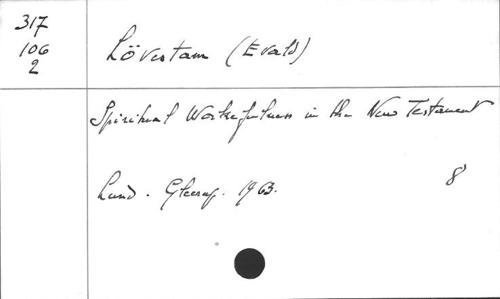 317
106
2
Lövestam (Evald)
Spiritual Wakefulness in the New Testament
Lund. Gleerup. 1963.
8°